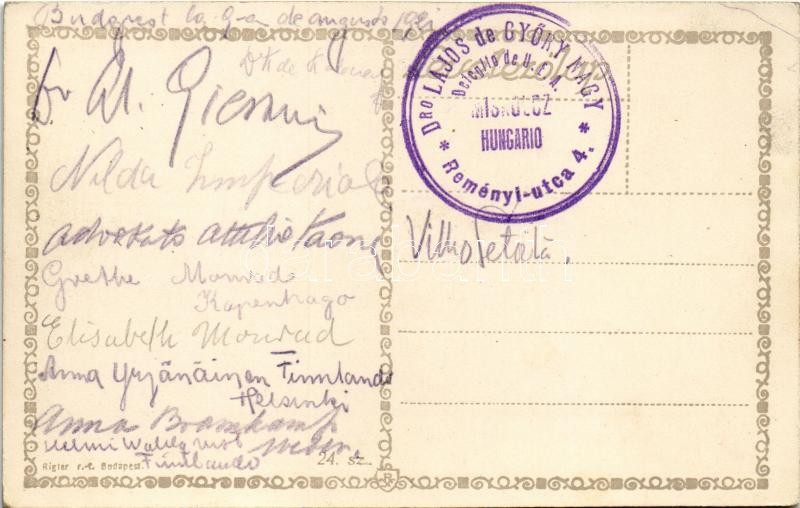 Budapest la 9-a de augusto 1921
Dro LAJOS de GYŐRY NAGY
Delegito de U.E.A.
MISKOLCZ
HUNGARIO
* Reményi-utca 4. *
Nilda Imperial
advokato Attilio
Grethe Monrad
Kopenhago
Elisabeth Monrad
Anna Yrjänäinen Finnlando
Helsinki
Anna
Helmi Wahlqvist
Finnlando
Vilho Setälä.
Rigler r.-t. Budapest.
24. sz.
darabanth